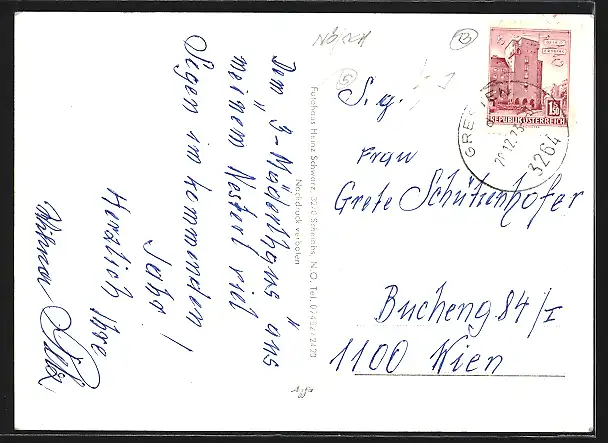 Dem "3-Mäderlhaus aus
meinem Nesterl viel
Segen im kommenden
Jahr!
Herzlich Ihre
Fotohaus Heinz Schwarz, 3270 Scheibbs, N.Ö., Tel. 07482/2423
Nachdruck verboten
Agfa
S. g.
Frau
Grete Schützenhofer
Bucheng 84/I
1100 Wien
GRESTEN
20.12.73
3264
1.50
REPUBLIK ÖSTERREICH